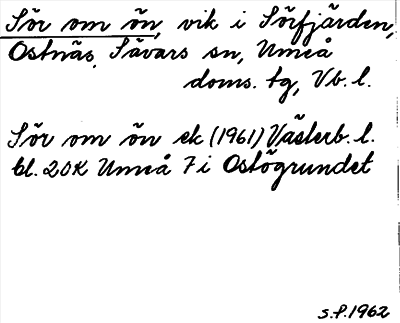 Sör om ön, vik i Sörfjärden,
Ostnäs, Sävars sn, Umeå
doms. tg, Vb. l.
Sör om ön ek (1961) Västerb. l.
bl. 20K Umeå 7 i Ostögrundet
s.f. 1962